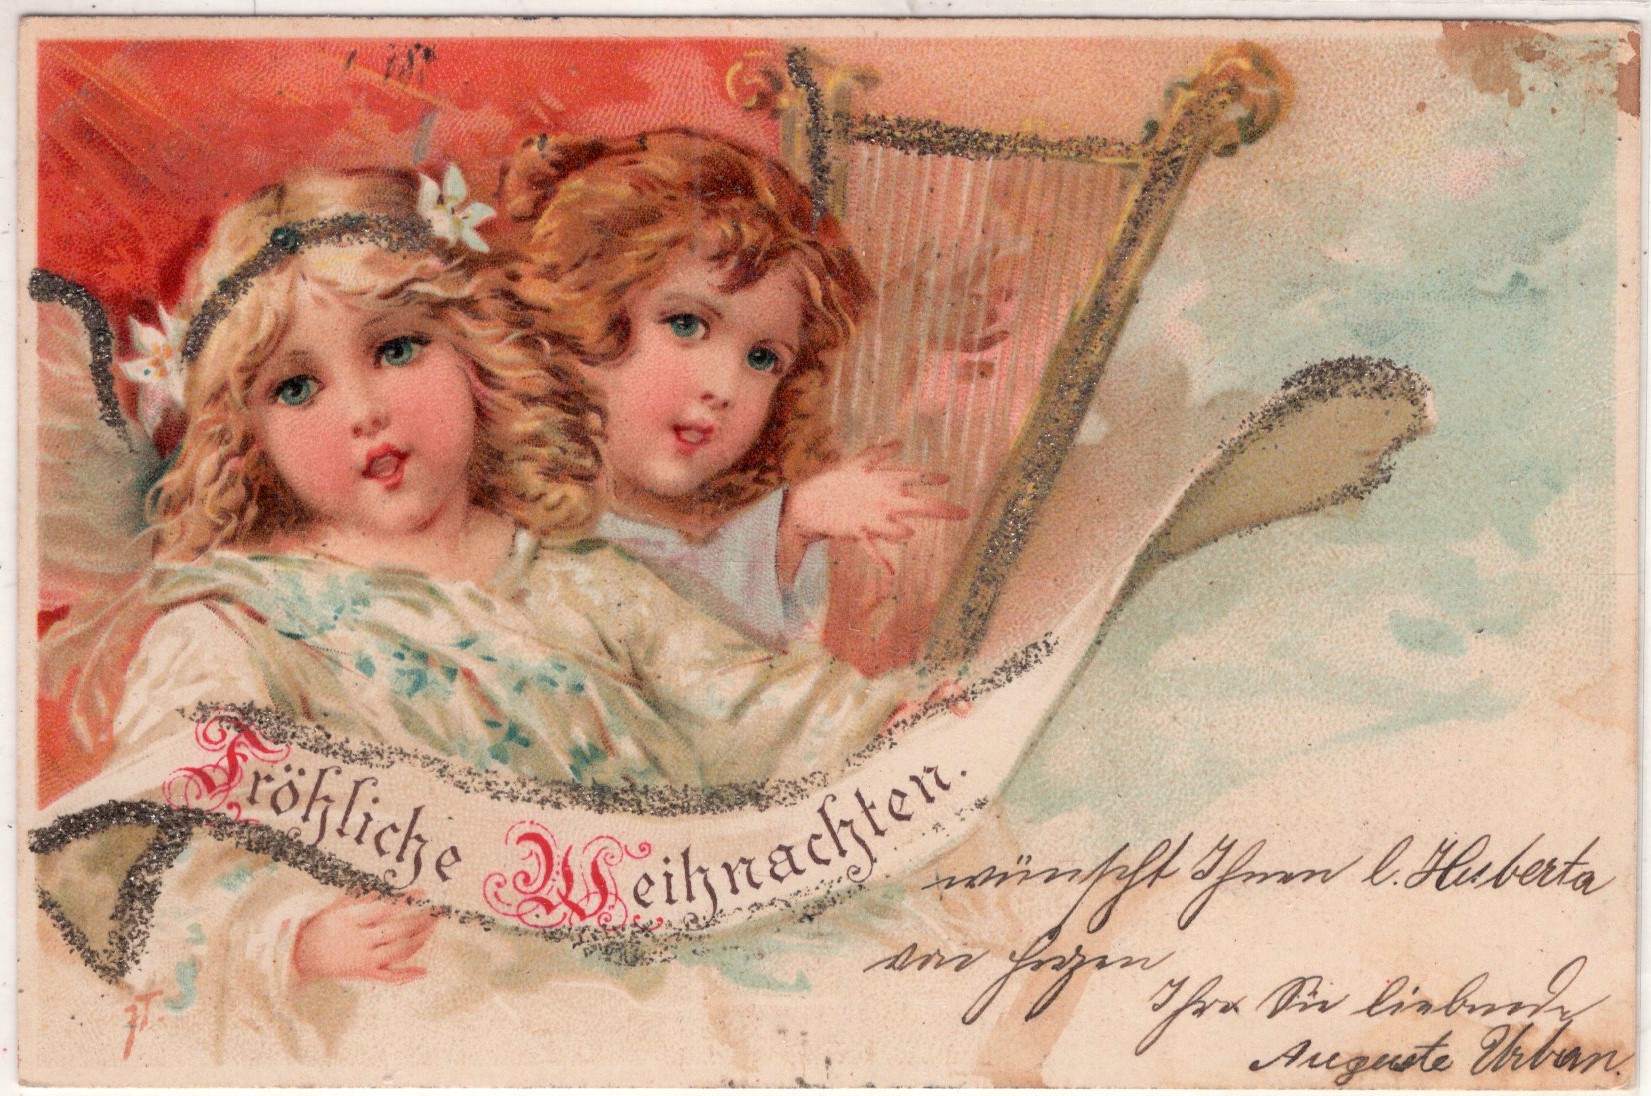 Fröhliche Weihnachten.
wünscht Ihnen l. Huberta
von Herzen
Ihre Sie liebende
Auguste Urban.